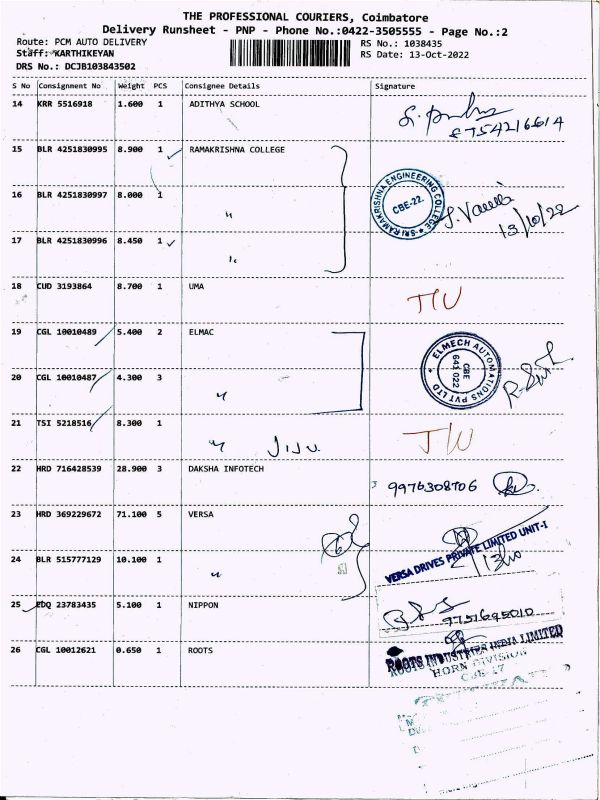 THE PROFESSIONAL COURIERS, Coimbatore
Delivery Runsheet - PNP - Phone No.:0422-3505555 - Page No.:2
Route: PCM AUTO DELIVERY RS No.: 1038435
Staff: KARTHIKEYAN RS Date: 13-Oct-2022
DRS No.: DCJB103843502
S No Consignment No Weight PCS Consignee Details Signature
14 KRR 5516918 1.600 1 ADITHYA SCHOOL
8754216614
15 BLR 4251830995 8.900 1 RAMAKRISHNA COLLEGE
16 BLR 4251830997 8.000 1 "
SRI RAMAKRISHNA ENGINEERING COLLEGE
CBE-22.
13/10/22
17 BLR 4251830996 8.450 1 "
18 CUD 3193864 8.700 1 UMA
19 CGL 10010489 5.400 2 ELMAC
ELMECH AUTOMATIONS PVT LTD
CBE
641 022
20 CGL 10010487 4.300 3 "
21 TSI 5218516 8.300 1 "
22 HRD 716428539 28.900 3 DAKSHA INFOTECH
9976308706
23 HRD 369229672 71.100 5 VERSA
VERSA DRIVES PRIVATE LIMITED UNIT-I
24 BLR 515777129 10.100 1 "
13/10
25 EDQ 23783435 5.100 1 NIPPON
9751695010
26 CGL 10012621 0.650 1 ROOTS
ROOTS INDUSTRIES INDIA LIMITED
HORN DIVISION
CBE-17